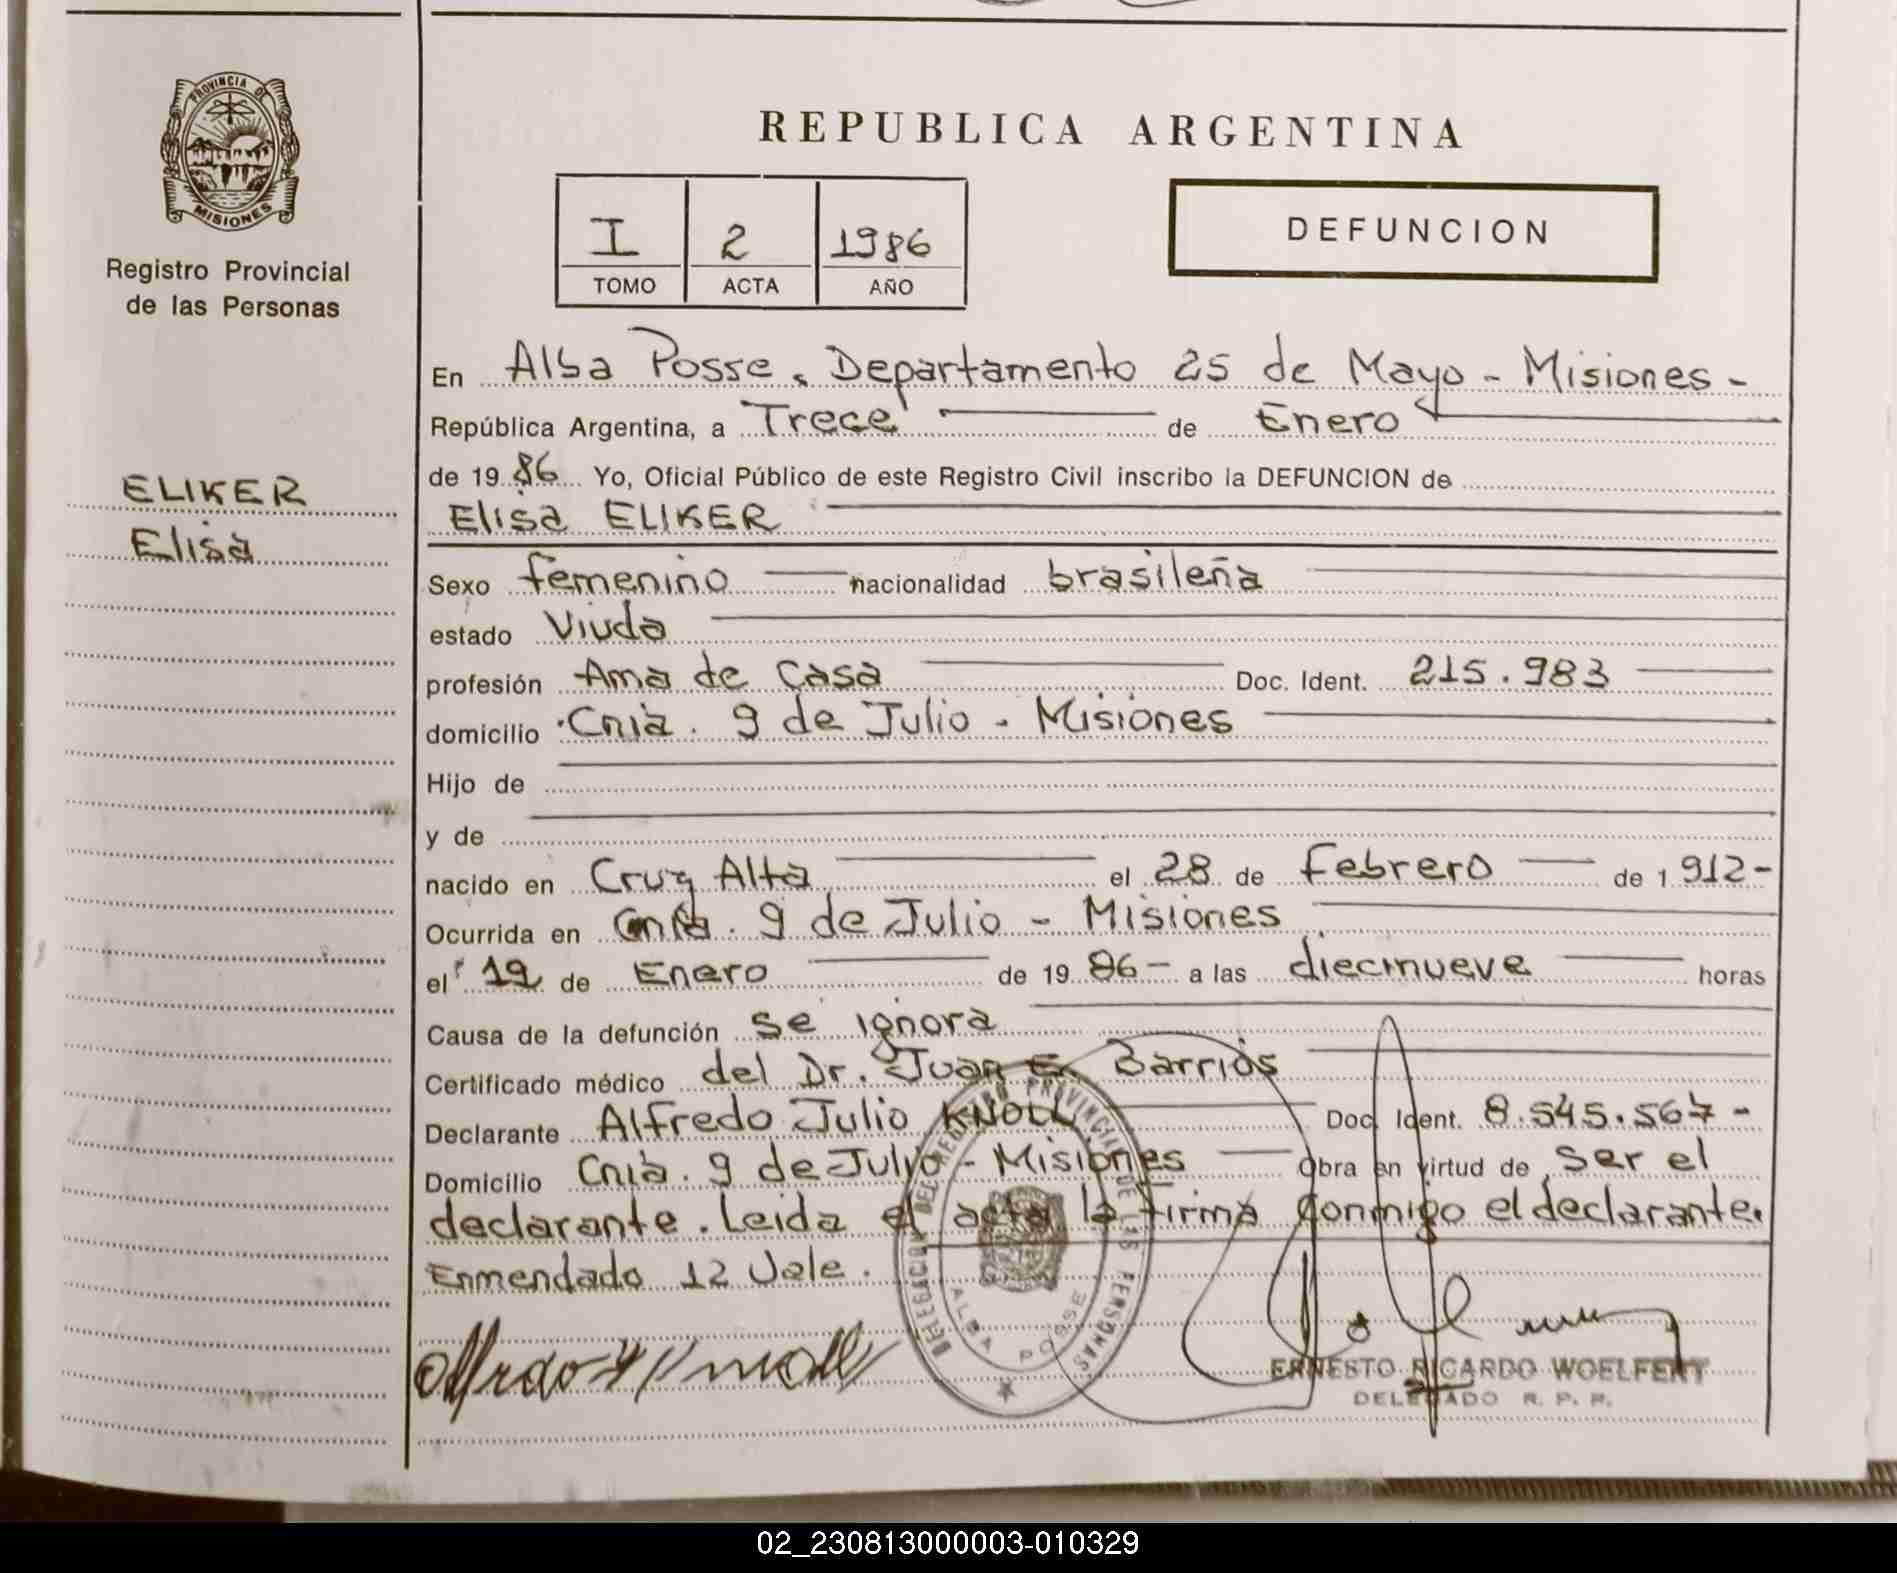 PROVINCIA DE
MISIONES
Registro Provincial
de las Personas
ELIKER
Elisa
REPUBLICA ARGENTINA
I 2 1986
TOMO ACTA AÑO
DEFUNCION
En Alba Posse. Departamento 25 de Mayo - Misiones -
República Argentina, a Trece de Enero
de 19 86 Yo, Oficial Público de este Registro Civil inscribo la DEFUNCION de
Elisa ELIKER
Sexo femenino nacionalidad brasileña
estado Viuda
profesión Ama de Casa Doc. Ident. 215.983
domicilio Cnia. 9 de Julio - Misiones
Hijo de
y de
nacido en Cruz Alta el 28 de Febrero de 1 912-
Ocurrida en Cnia. 9 de Julio - Misiones
el 12 de Enero de 19 86- a las diecinueve horas
Causa de la defunción se ignora
Certificado médico del Dr. Juan E. Barrios
Declarante Alfredo Julio KNOLL Doc. Ident. 8.545.567-
Domicilio Cnia. 9 de Julio - Misiones Obra en virtud de Ser el
declarante. Leida el acta la firma conmigo el declarante.
Enmendado 12 Vale.
DELEGACION DEL REGISTRO PROVINCIAL DE LAS PERSONAS
ALBA POSSE
ERNESTO RICARDO WOELFERT
DELEGADO R. P. P.
02_230813000003-010329